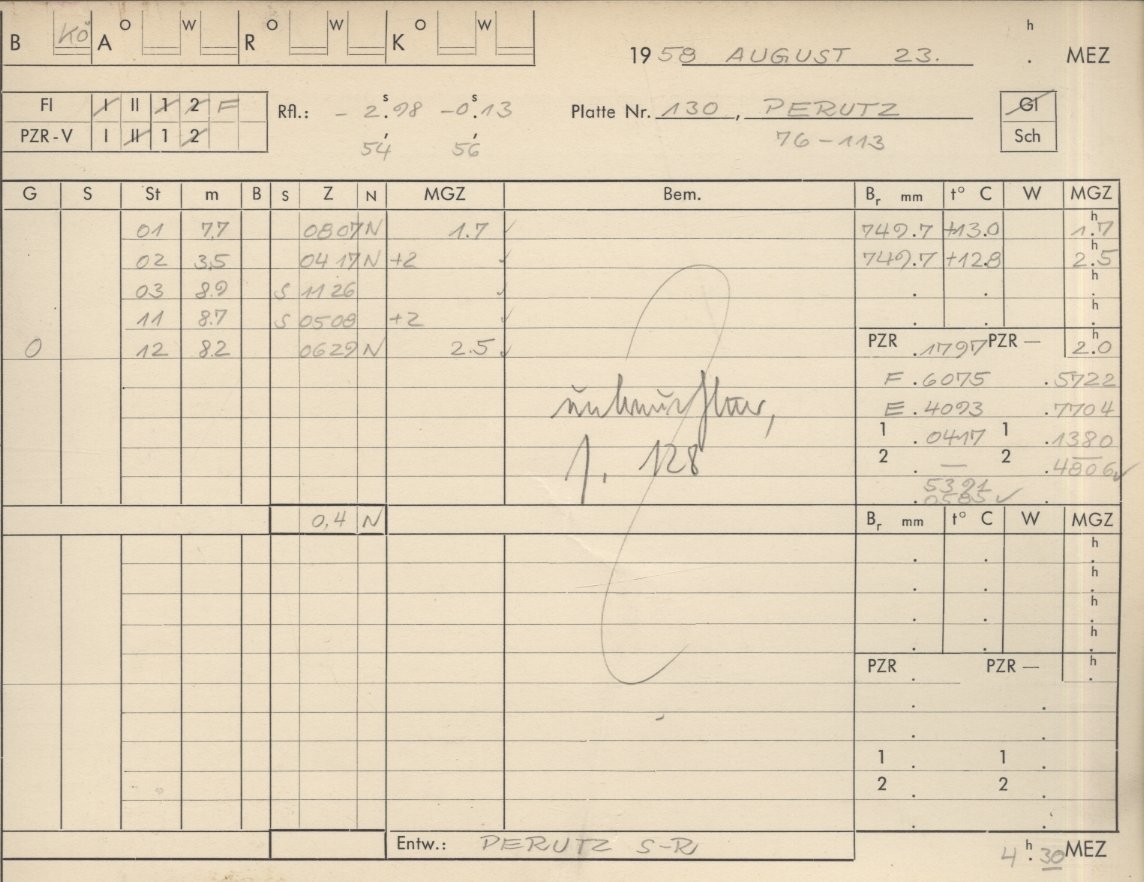 B Kö A O W R O W K O W
19 58 AUGUST 23. h . MEZ
Fl I II 1 2 F Rfl.: - 2.s98 -0.s13 Platte Nr. 130, PERUTZ Gl
PZR-V I II 1 2 54 56 76-113 Sch
G S St m B S Z N MGZ Bem. Br mm t° C W MGZ
01 7.7 0807 N 1.7 ✓ 749.7 +13.0 h 1.7
02 3.5 0417 N +2 ✓ 749.7 +12.8 h 2.5
03 8.9 S 1126 ✓ . . h .
11 8.7 S 0508 +2 ✓ . . h .
0 12 8.2 0629 N 2.5 ✓ PZR .1797 PZR — h 2.0
F .6075 .5722
E .4093 .7704
1 .0417 1 .1380
2 . — 2 .4806 ✓
128
5391
.0585 ✓ .
0,4 N Br mm t° C W MGZ
. . h .
. . h .
. . h .
. . h .
PZR . PZR — h .
. .
. .
1 . 1 .
2 . 2 .
. .
Entw.: PERUTZ S-R 4 h. 30 MEZ